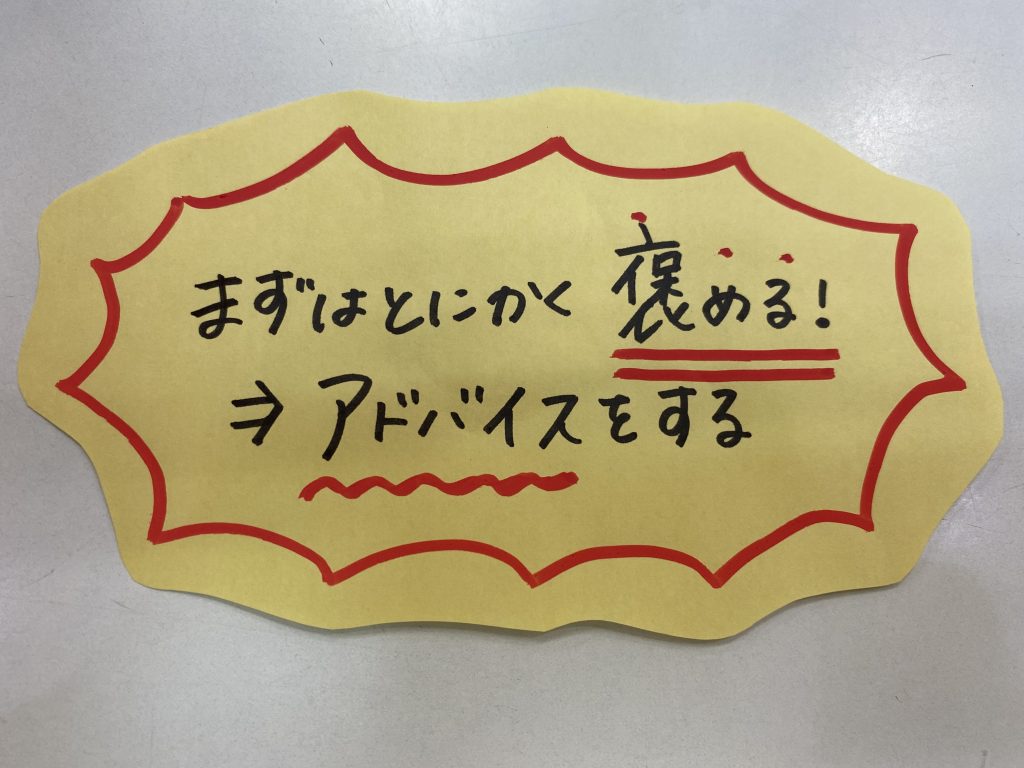 まずはとにかく褒める!
⇒アドバイスをする